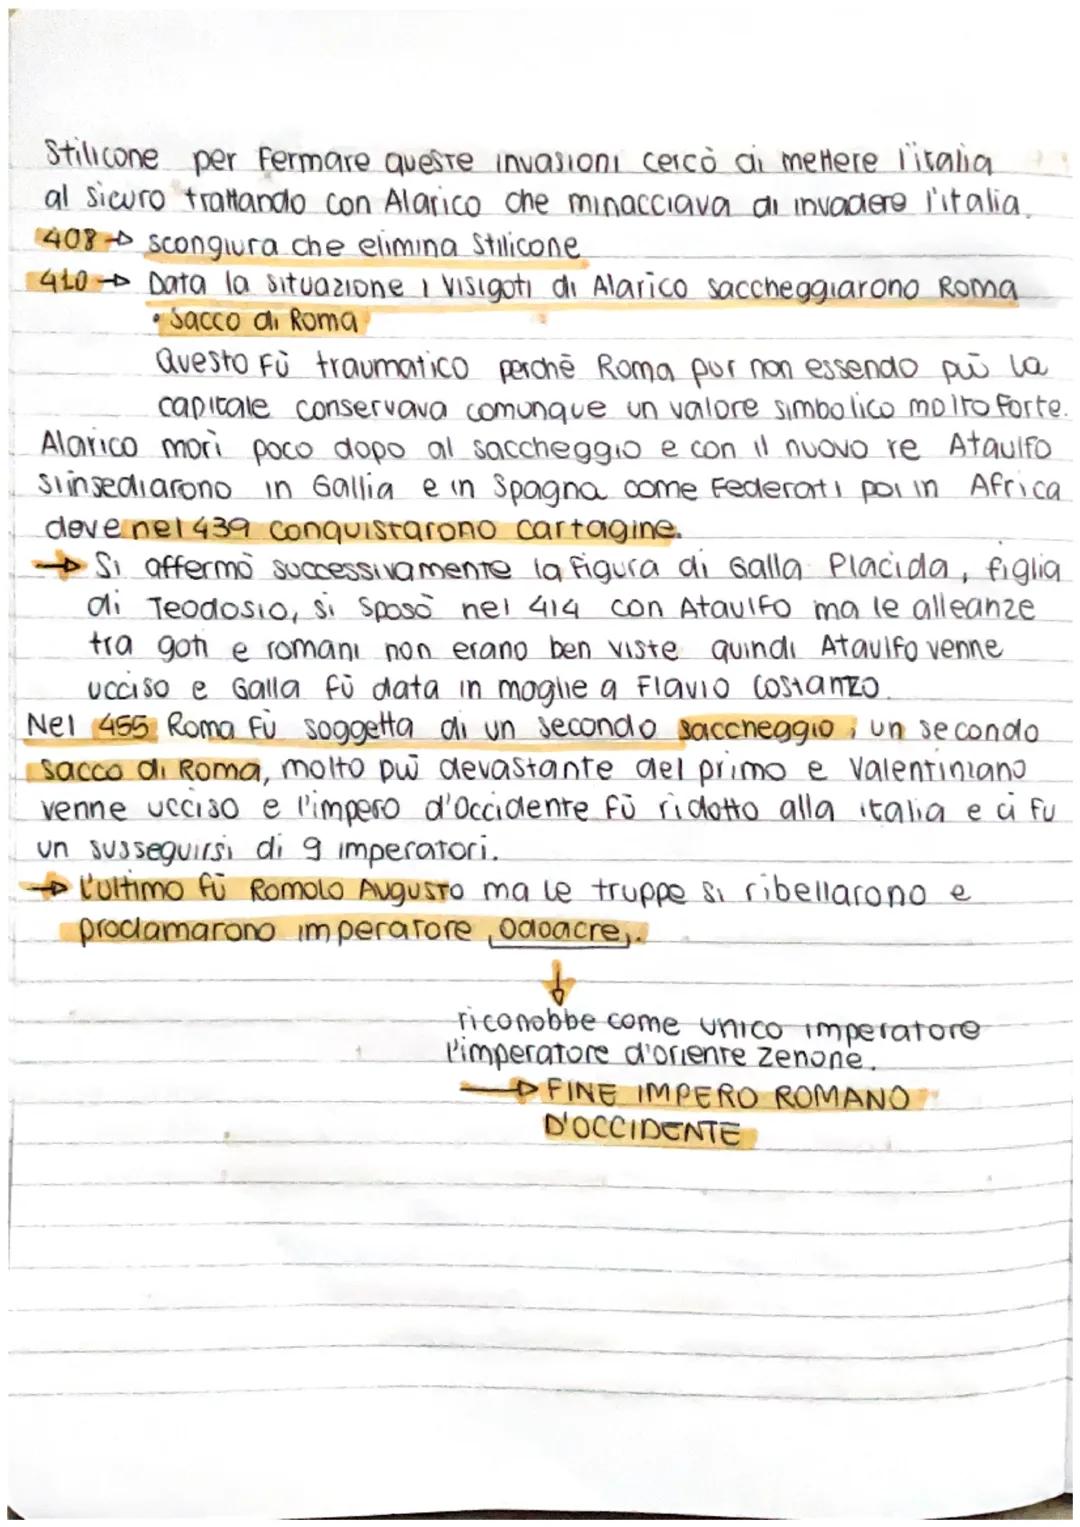 Stilicone per fermare queste invasioni cercò di mettere l'italia
al sicuro trattando con Alarico che minacciava di invadere l'italia.
408 → scongiura che elimina Stilicone
410 → Data la situazione i Visigoti di Alarico saccheggiarono Roma
• Sacco di Roma
Questo fù traumatico perchè Roma pur non essendo più la
capitale conservava comunque un valore simbolico molto forte.
Alarico morì poco dopo al saccheggio e con il nuovo re Ataulfo
si insediarono in Gallia e in Spagna come federati poi in Africa
dove nel 439 conquistarono Cartagine.
→ Si affermò successivamente la figura di Galla Placida, figlia
di Teodosio, si sposò nel 414 con Ataulfo ma le alleanze
tra goti e romani non erano ben viste quindi Ataulfo venne
ucciso e Galla fù data in moglie a Flavio Costanzo.
Nel 455 Roma fù soggetta di un secondo saccheggio, un secondo
sacco di Roma, molto più devastante del primo e Valentiniano
venne ucciso e l'impero d'Occidente fù ridotto alla italia e ci fu
un susseguirsi di 9 imperatori.
→ L'ultimo fù Romolo Augusto ma le truppe si ribellarono e
proclamarono imperatore Odoacre.
↓
riconobbe come unico imperatore
l'imperatore d'oriente Zenone.
→ FINE IMPERO ROMANO
D'OCCIDENTE